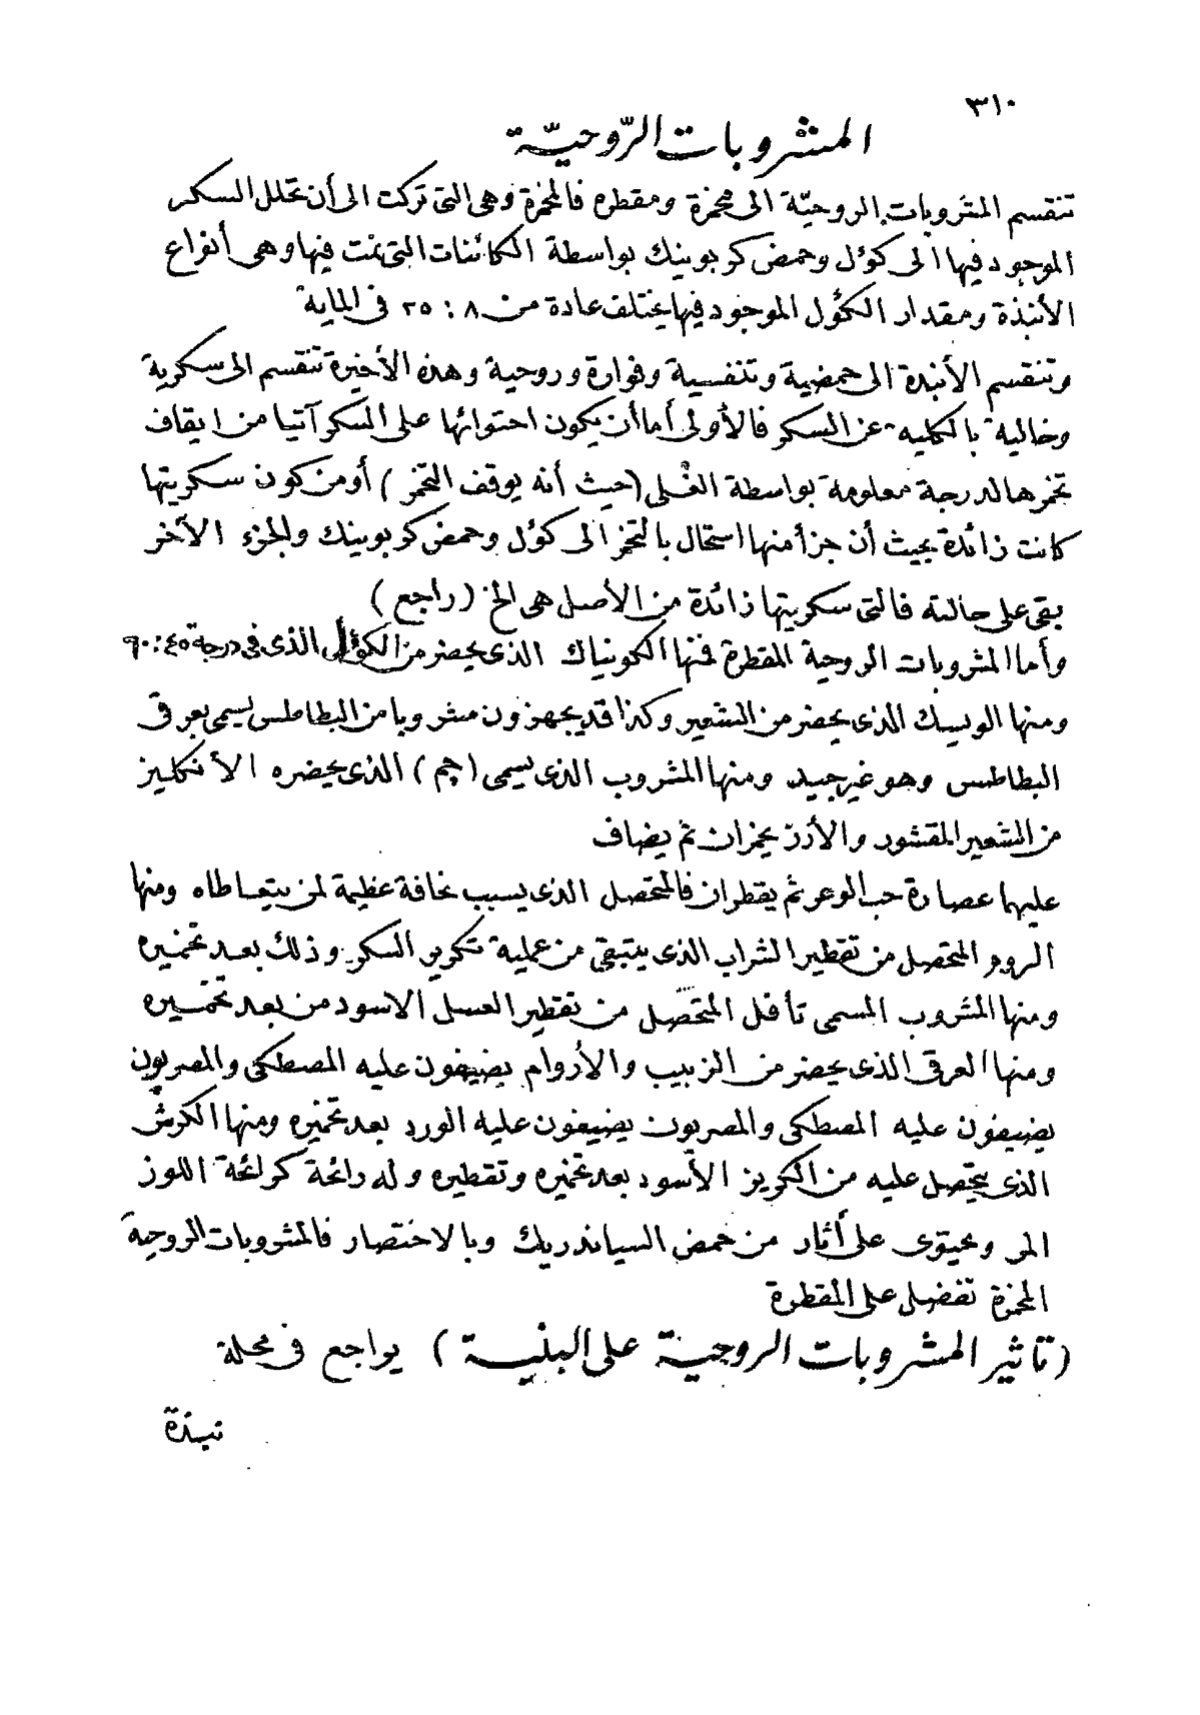 ٣١٠
المشروبات الرّوحيّة
تنقسم المشروبات الروحيّة الى مخمرة ومقطره فالمخمرة وهى التى تركت الى أن تحلل السكر
الموجود فيها الى كؤل وحمض كربونيك بواسطة الكائنات التى نمت فيها وهى أنواع
الأنبذة ومقدار الكؤل الموجود فيها يختلف عادة من ٨ : ٢٥ فى الماية
وتنقسم الأنبذة الى حمضية وتنفسية وفوارة وروحية وهذه الأخيرة تنقسم الى سكرية
وخالية بالكليه عن السكر فالأولى أما أن يكون احتوائها على السكر آتيا من ايقاف
تخمرها لدرجة معلومة بواسطة الغلى (حيث أنه يوقف التخمر) أو من كون سكريتها
كانت زائدة بحيث أن جزأ منها استحال بالتخمر الى كؤل وحمض كربونيك والجزء الآخر
بقى على حالته فالتى سكريتها زائدة من الأصل هى الخ (راجع)
وأما المشروبات الروحية المقطرة فمنها الكونياك الذى يحضر من الكؤل الذى فى درجة ٤٥ : ٩٠
ومنها الويسك الذى يحضر من الشعير وكذا قد يجهزون مشروبا من البطاطس يسمى بعرقى
البطاطس وهو غير جيد ومنها المشروب الذى يسمى (چم) الذى يحضره الأنكليز
من الشعير المقشور والأرز يخمران ثم يضاف
عليهما عصارة حب الوعر ثم يقطران فالمتحصل الذى يسبب نحافة عظيمة لمن يتعاطاه ومنها
الروم المتحصل من تقطير الشراب الذى يتبقى من عملية تكرير السكر وذلك بعد تخميره
ومنها المشروب المسمى تأفل المتحصل من تقطير العسل الاسود من بعد تخميره
ومنها العرقى الذى يحضر من الزبيب والأروام يضيفون عليه المصطكى والمصريون
يضيفون عليه المصطكى والمصريون يضيفون عليه الورد بعد تخميره ومنها الكرش
الذى يتحصل عليه من الكريز الأسود بعد تخميره وتقطيره وله رائحة كرائحة اللوز
المر ويحتوى على أثار من حمض السياندريك وبالاختصار فالمشروبات الروحية
المخمرة تفضل على المقطرة
(تأثير المشروبات الروحية على البنية) يراجع فى محله
نبذة